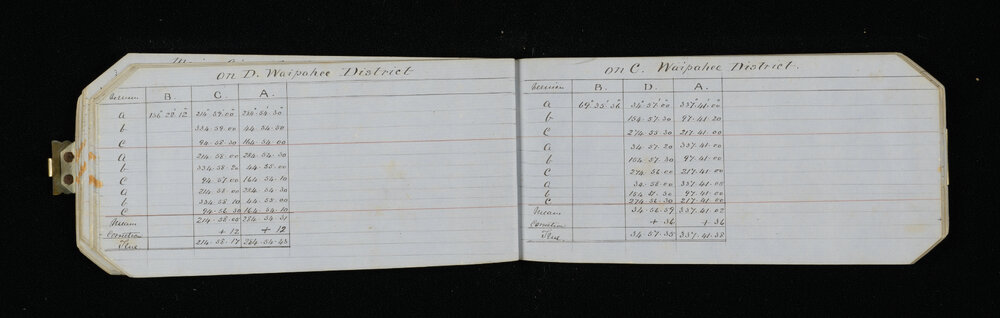 on D. Waipahee District
Vernier B. C. A.
a 156° 22' 12" 214° 59' 00" 284° 54' 30"
b 334. 59. 00 44. 54. 50
c 94. 58. 30 164. 54. 00
a 214. 58. 00 284. 54. 30
b 334. 58. 20 44. 55. 00
c 94. 57. 00 164. 54. 10
a 214. 58. 00 284. 54. 30
b 334. 58. 10 44. 55. 00
c 94. 56. 30 164. 54. 10
Mean 214. 58. 05 284. 54. 31
Correction + 12 + 12
True 214. 58. 17 284. 54. 43
on C. Waipahee District.
Vernier B. D. A.
a 69° 35' 56" 34° 57' 00" 337° 41' 00"
b 154. 57. 30 97. 41. 20
c 274. 55. 30 217. 41. 00
a 34. 57. 20 337. 41. 00
b 154. 57. 30 97. 41. 00
c 274. 56. 00 217. 41. 00
a 34. 58. 00 337. 41. 00
b 154. 57. 30 97. 41. 00
c 274. 56. 30 217. 41. 00
Mean 34. 56. 59 337. 41. 02
Correction + 36 + 36
True 34. 57. 35 337. 41. 38